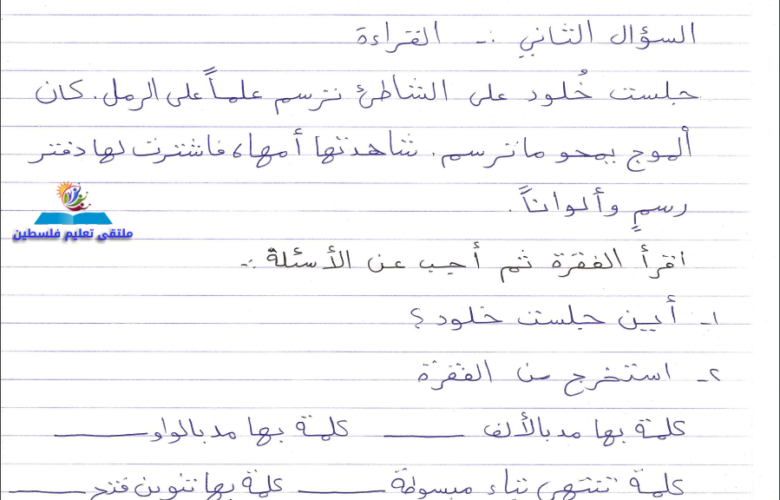 السؤال الثاني :- القراءة
جلست خُلود على الشاطئ ترسم علماً على الرمل. كان
الموج يمحو ما ترسم. شاهدتها أمها، فاشترت لها دفتر
رسمٍ وألواناً.
ملتقى تعليم فلسطين
اقرأ الفقرة ثم أجب عن الأسئلة :-
١- أين جلست خلود؟
٢- استخرج من الفقرة
كلمة بها مد بالألف ______ كلمة بها مد بالواو ______
كلمة تنتهي بتاء مبسوطة ______ كلمة بها تنوين فتح ______